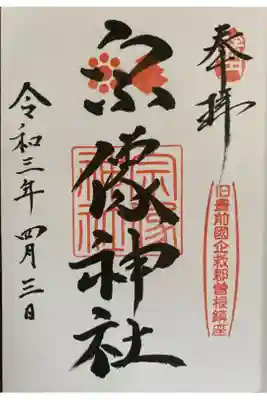 奉拝
旧豊前國企救郡曽根鎮座
宗像神社
宗像神社
令和三年 四月三日